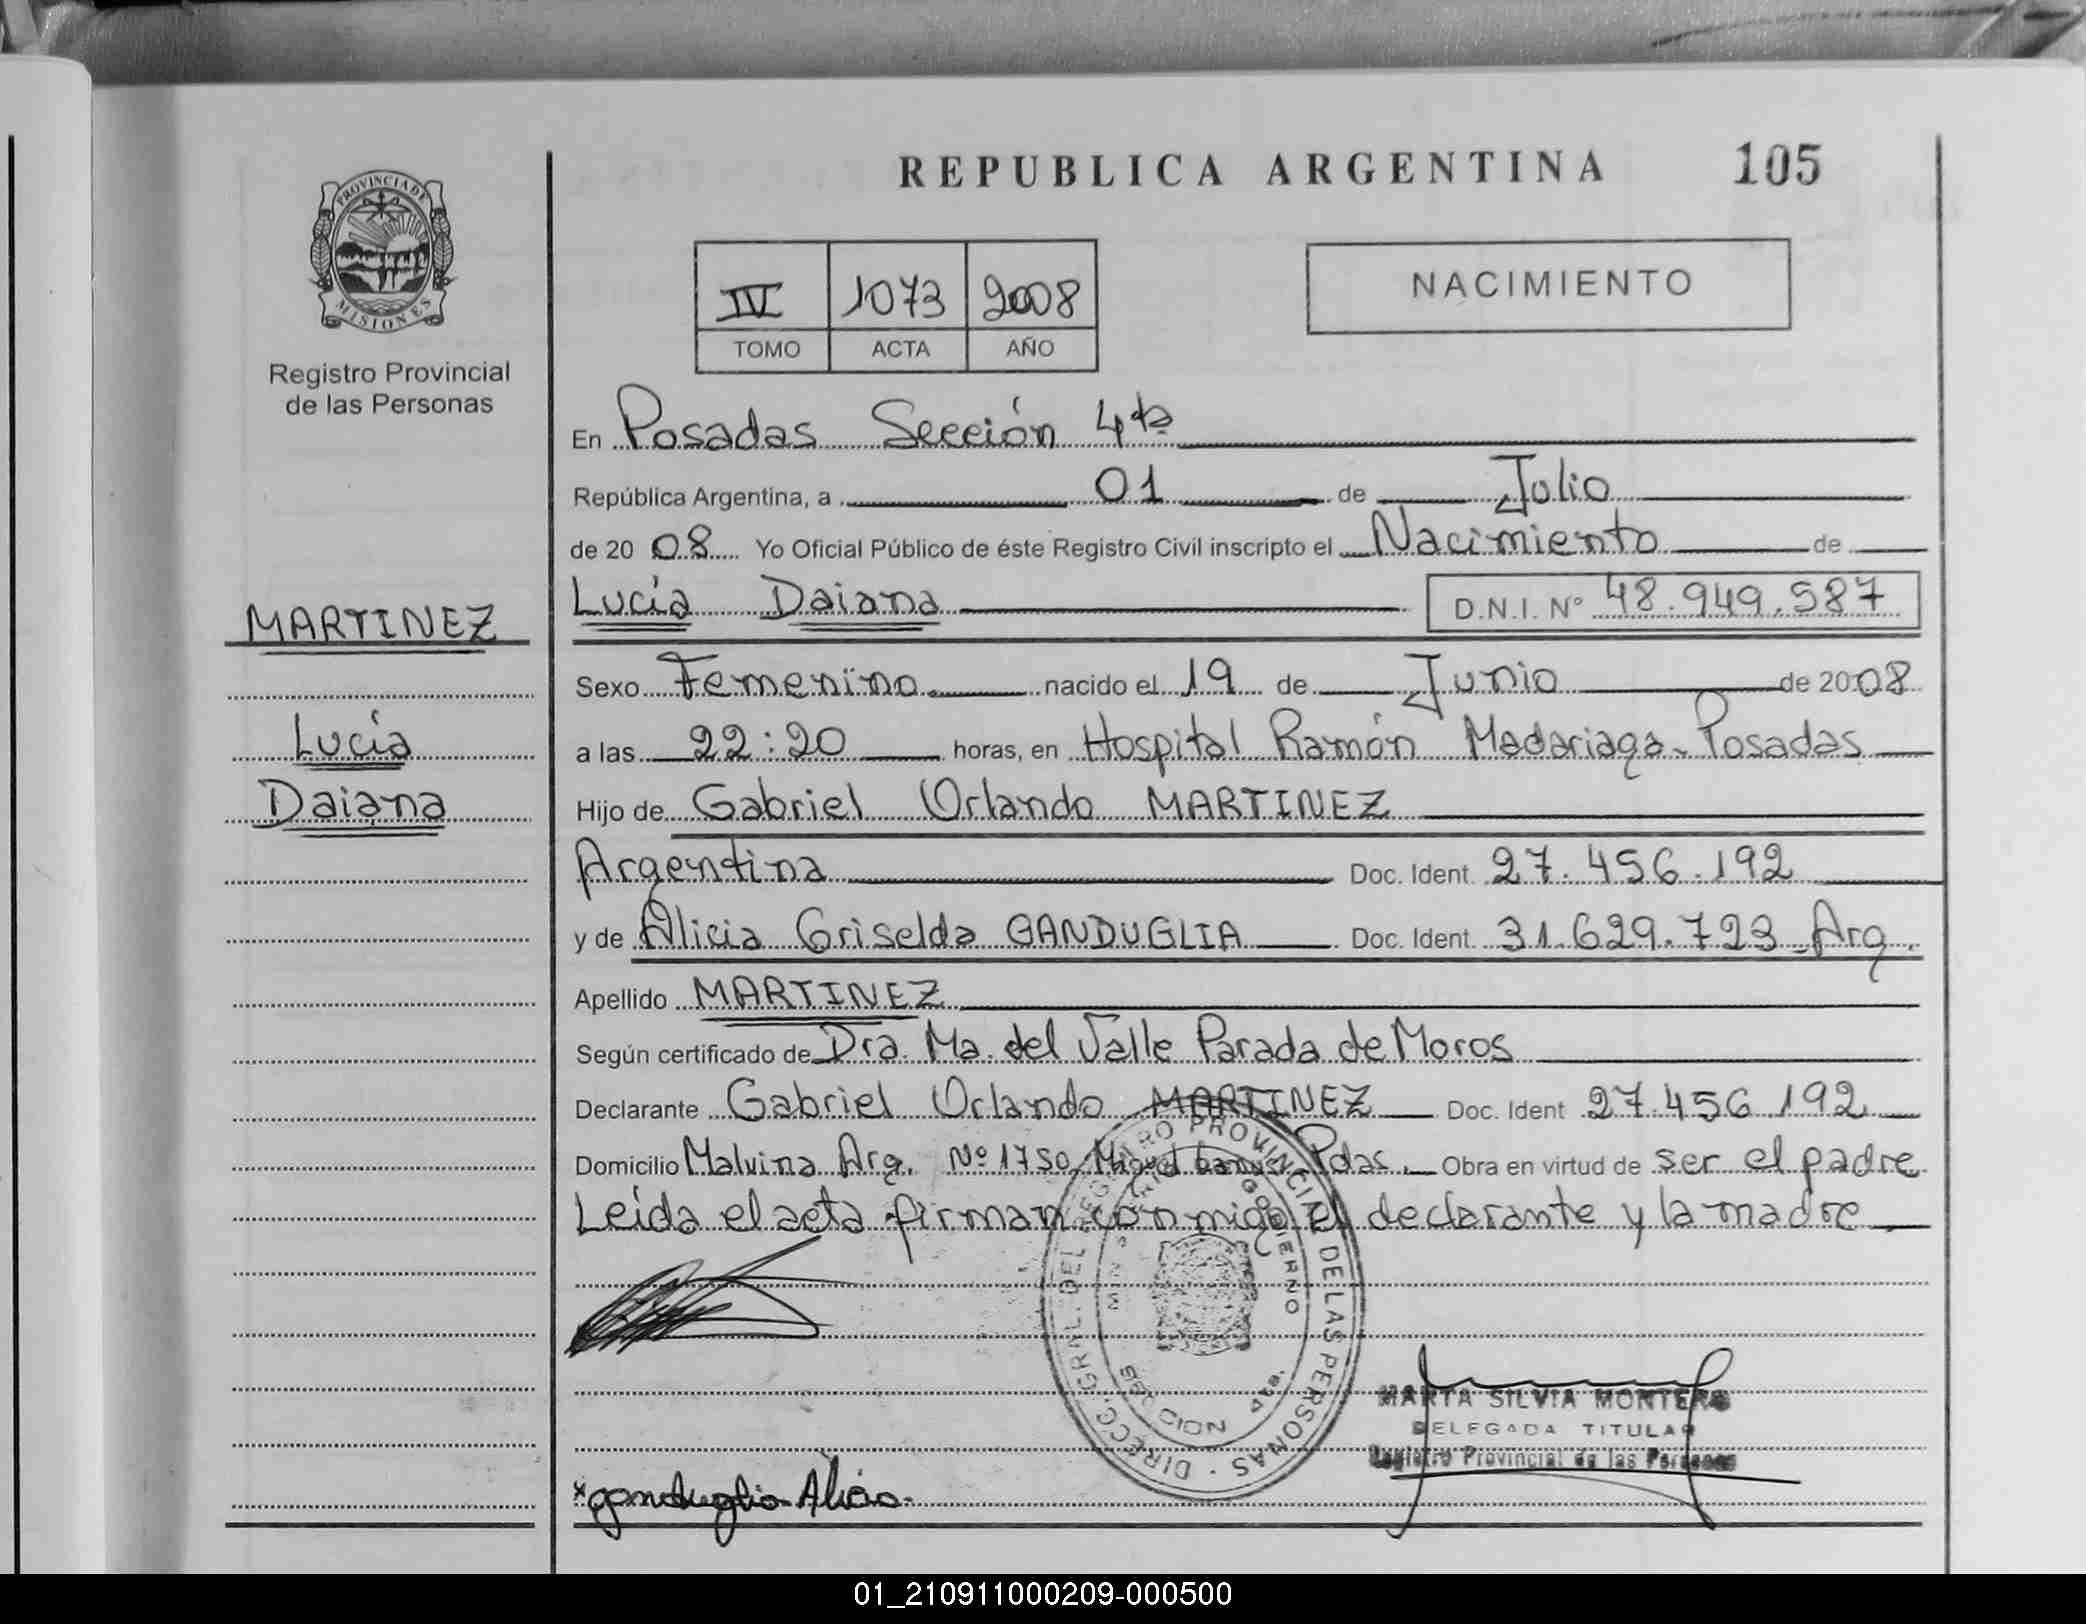 REPUBLICA ARGENTINA 105
PROVINCIA DE
MISIONES
Registro Provincial
de las Personas
IV 1073 2008
TOMO ACTA AÑO
NACIMIENTO
En Posadas Sección 4ta
República Argentina, a 01 de Julio
de 20 08 Yo Oficial Público de éste Registro Civil inscripto el Nacimiento de
MARTINEZ
Lucía
Daiana
Lucía Daiana D.N.I. Nº 48.949.587
Sexo Femenino nacido el 19 de Junio de 2008
a las 22:20 horas, en Hospital Ramón Madariaga - Posadas
Hijo de Gabriel Orlando MARTINEZ
Argentina Doc. Ident. 27.456.192
y de Alicia Griselda GANDUGLIA Doc. Ident. 31.629.723 Arg.
Apellido MARTINEZ
Según certificado de Dra. Ma. del Valle Parada de Moros
Declarante Gabriel Orlando MARTINEZ Doc. Ident 27.456.192
Domicilio Malvina Arg. Nº 1750 Miguel Pdas. Obra en virtud de ser el padre
Leída el acta firman conmigo el declarante y la madre
DIRECC. GRAL. DEL REGISTRO PROVINCIAL DE LAS PERSONAS
GOBIERNO
MARTA SILVIA MONTERO
DELEGADA TITULAR
Registro Provincial de las Personas
x Ganduglia Alicia.
01_210911000209-000500